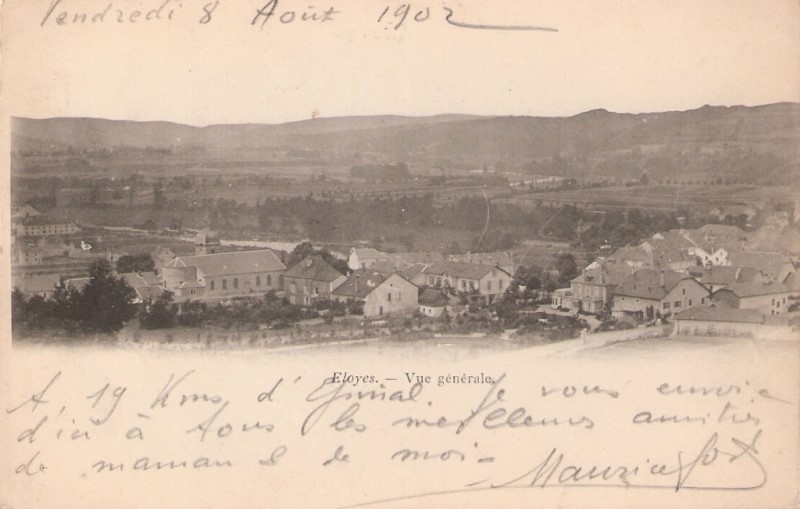 Vendredi 8 Août 1902
Eloyes. — Vue générale.
A 19 Kms d'Epinal. Je vous envoie
d'ici à tous les meilleures amitiés
de maman & de moi -
Maurice